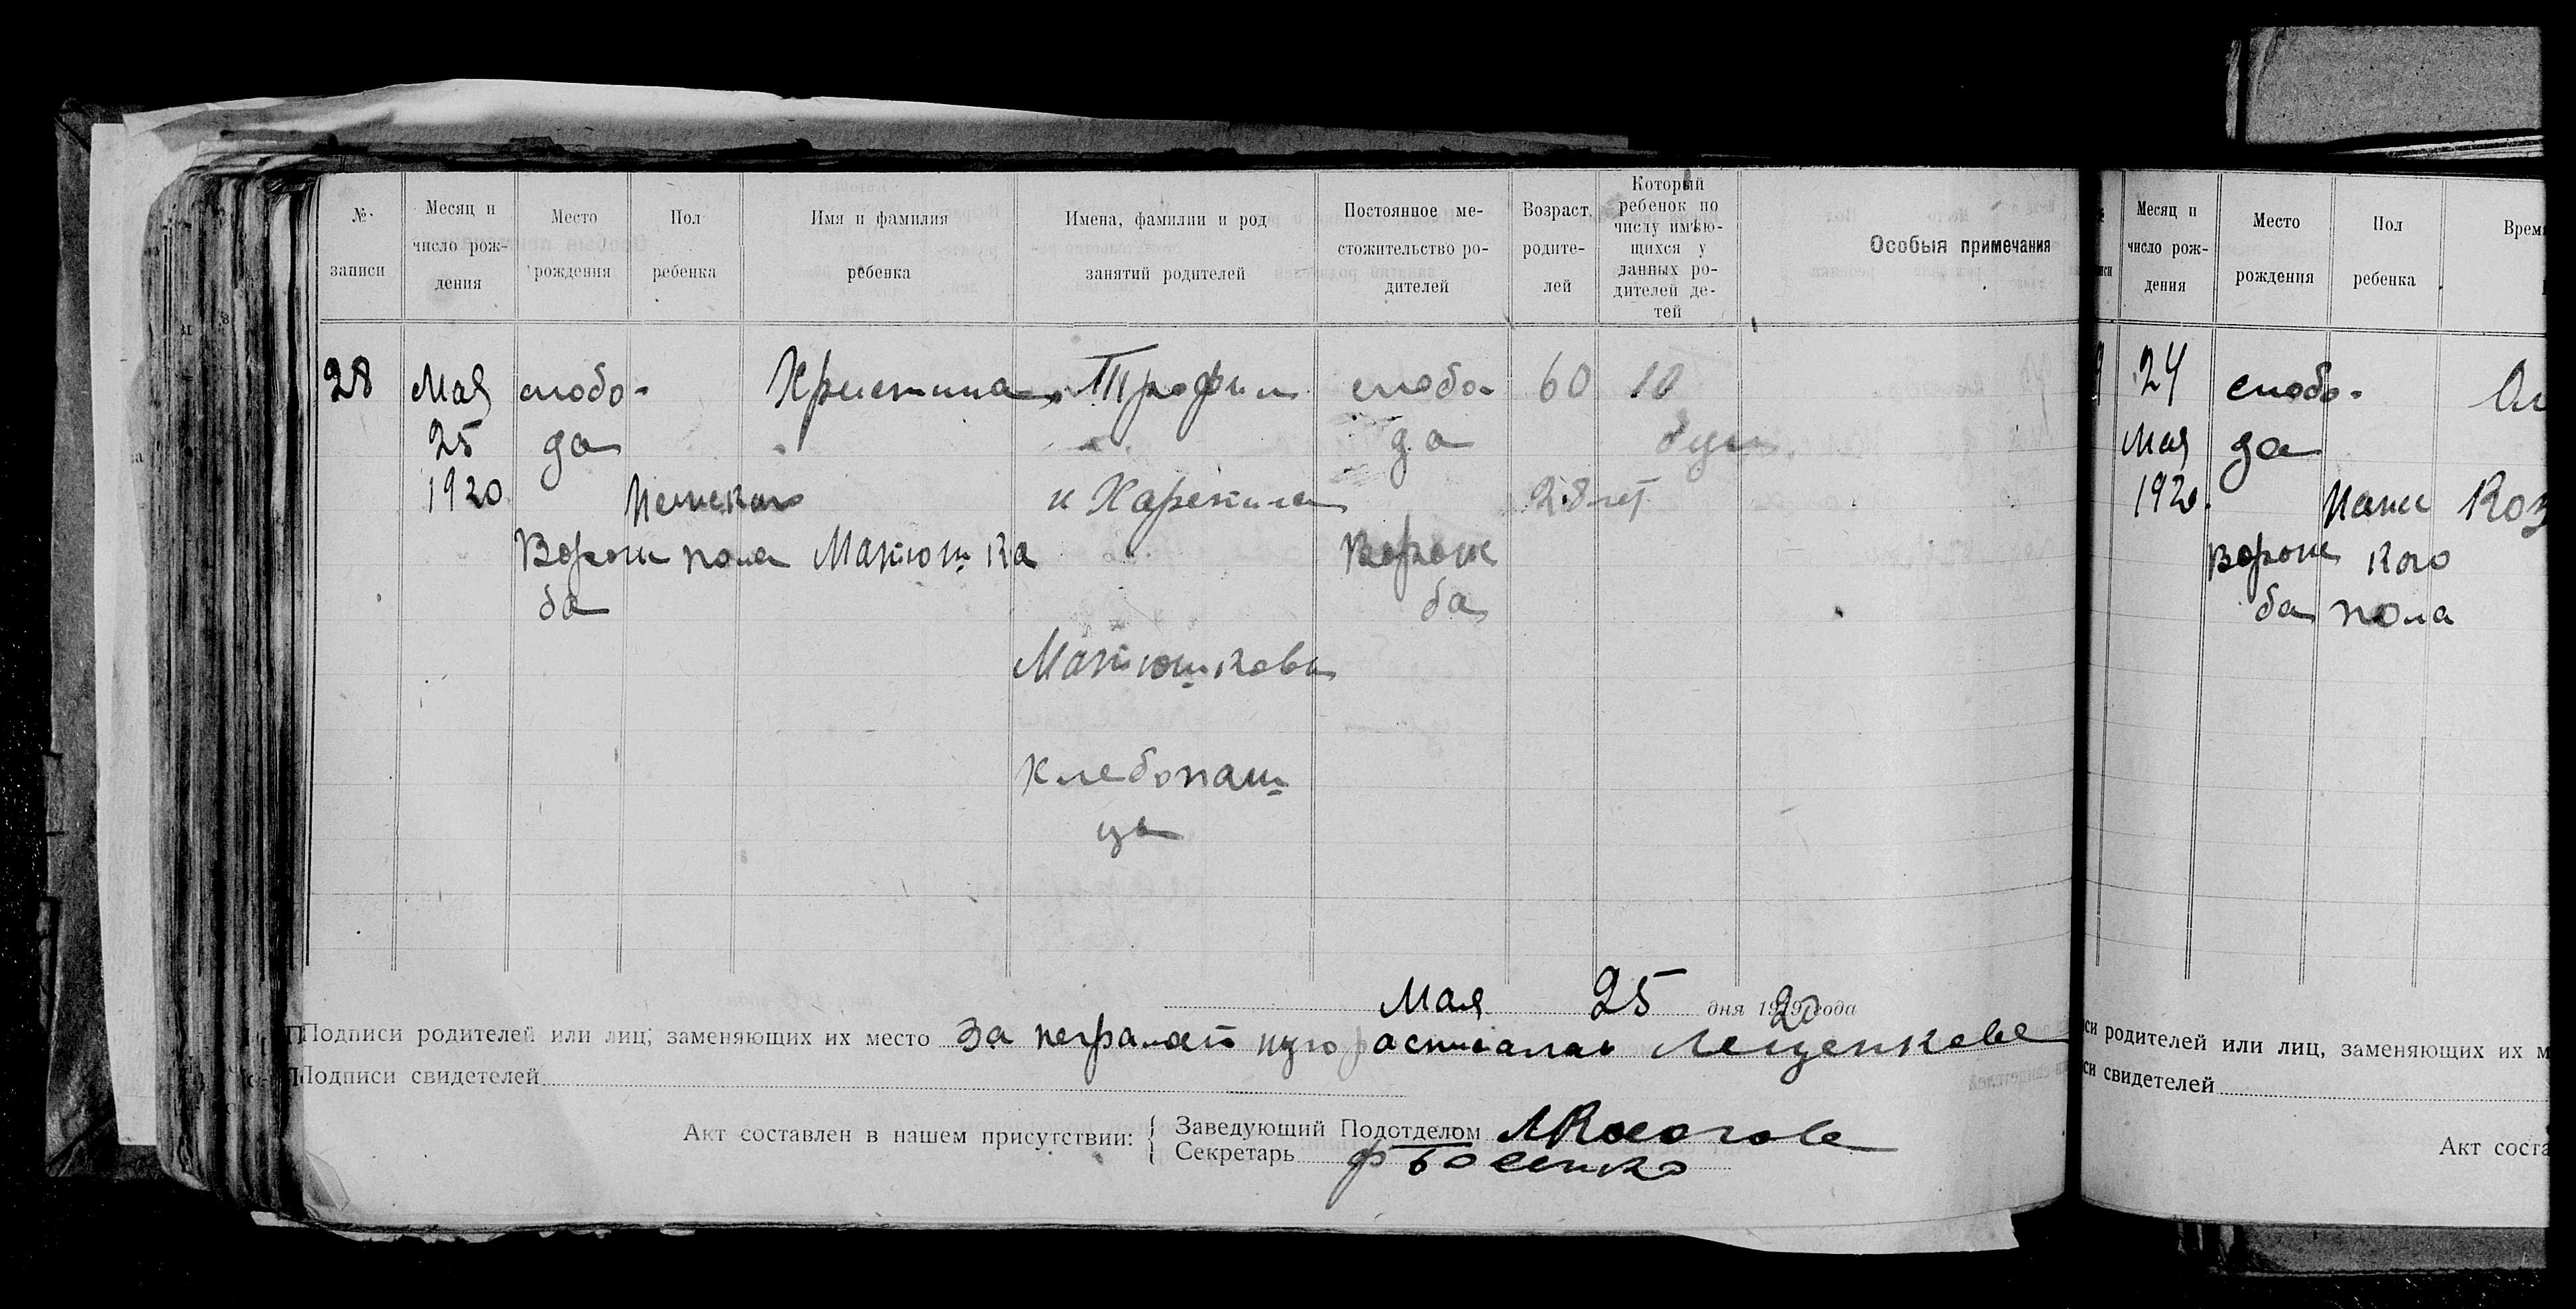 №
записи
Месяц и
число рож-
дения
Место
рождения
Пол
ребенка
Имя и фамилия
ребенка
Имена, фамилии и род
занятий родителей
Постоянное ме-
стожительство ро-
дителей
Возраст
родите-
лей
Который
ребенок по
числу имѣю-
щихся у
данных ро-
дителей де-
тей
Особыя примечания
28
Мая
25
1920
слобо-
да
Ворож
ба
Женскаго
пола
Христина
Матюшка
Трофим
и Харитина
Матюшковы
хлебопаш
цы
слобо
да
Ворож
ба
60
28 лет
10
душ
Мая 25 дня 1920 года
Подписи родителей или лиц, заменяющих их место За неграмотную расписалас Лещенкова
Подписи свидетелей
Акт составлен в нашем присутствии:
Заведующий Подотделом
Секретарь
Месяц и
число рож-
дения
Место
рождения
Пол
ребенка
Врем
24
Мая
1920
слобо-
да
Ворож
ба
Женс
кого
пола
Коз
си родителей или лиц, заменяющих их м
си свидетелей
Акт соста